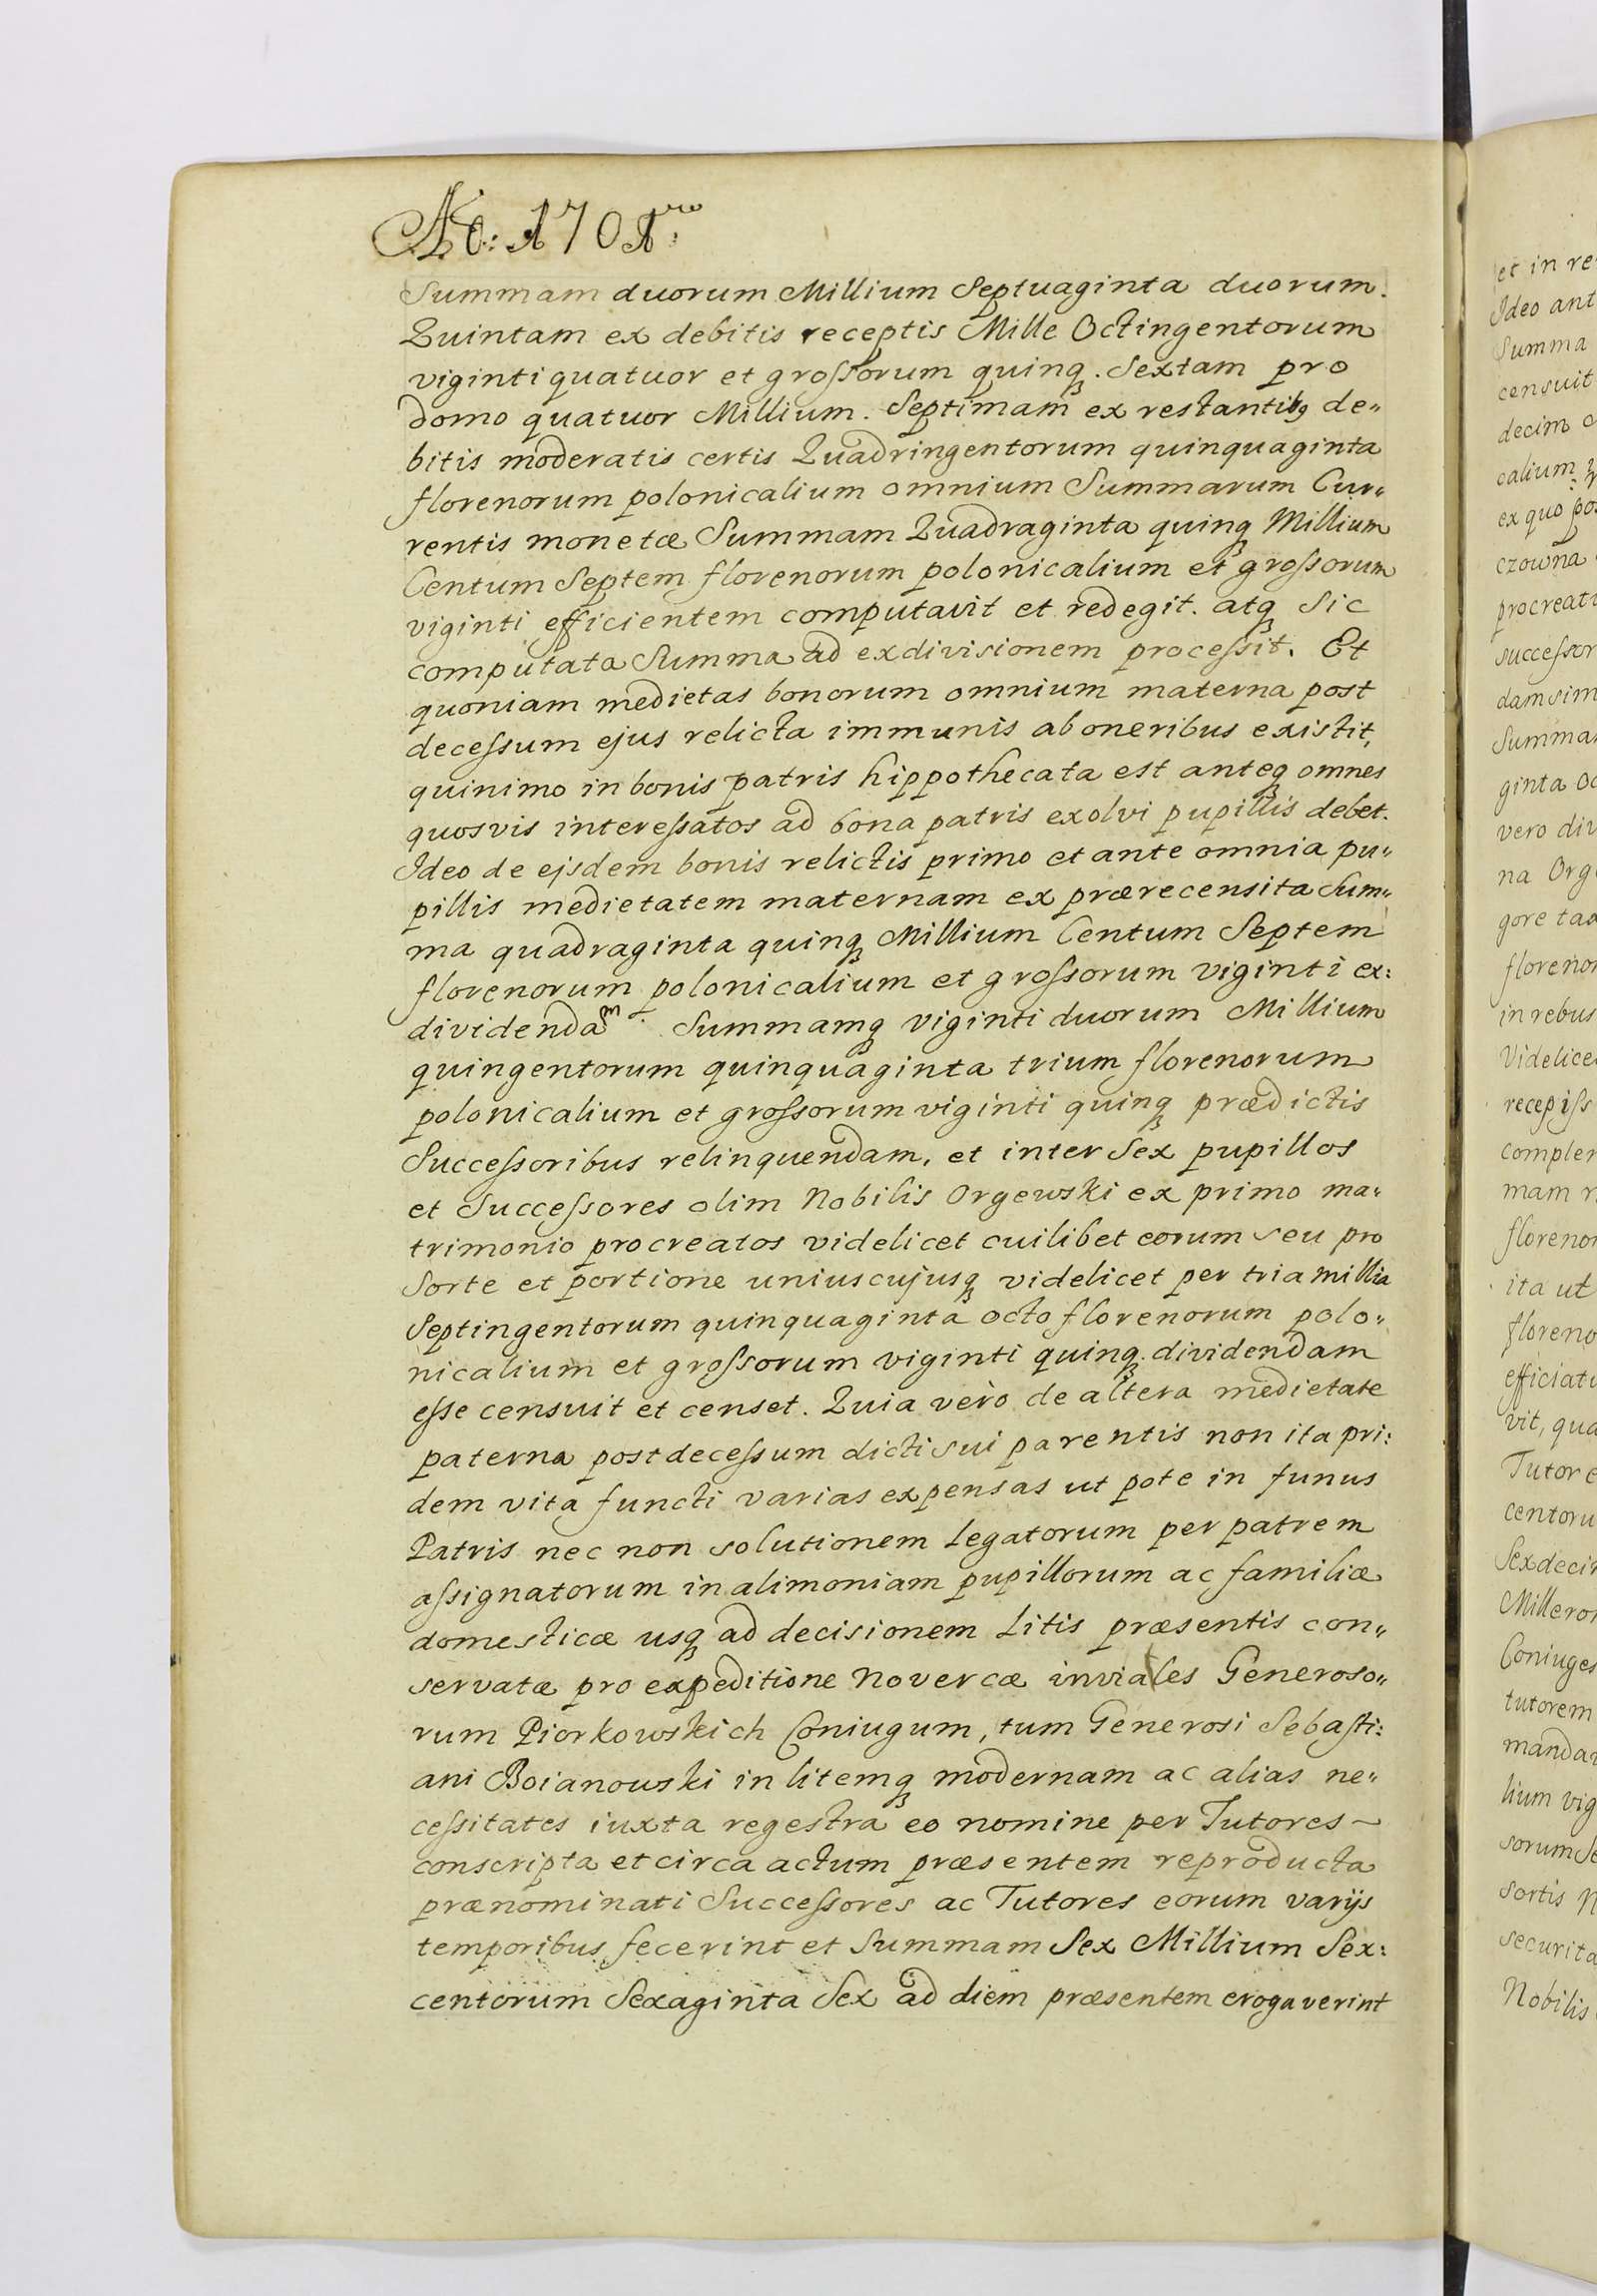 Ao: 1701mo
Summam duorum Millium Septuaginta duorum.
Quintam ex debitis receptis Mille Octingentorum
viginti quatuor et grossorum quinq. Sextam pro
domo quatuor Millium. Septimam ex restantibq de„
bitis moderatis certis Quadringentorum quinquaginta
florenorum polonicalium omnium Summarum Cur„
rentis monetæ Summam Quadraginta quinq Millium
Centum Septem florenorum polonicalium et grossorum
viginti efficientem computavit et redegit. atq Sic
computata Summa ad exdivisionem processit. Et
quoniam medietas bonorum omnium materna post
decessum ejus relicta immunis ab oneribus existit,
quinimo in bonis patris hippothecata est anteq omnes
quosvis interessatos ad bona patris exolvi pupillis debet.
Ideo de ejsdem bonis relictis primo et ante omnia pu„
pillis medietatem maternam ex prærecensita Sum„
ma quadraginta quinq Millium Centum Septem
florenorum polonicalium et grossorum viginti ex:
dividendam. Summamq viginti duorum Millium
quingentorum quinquaginta trium florenorum
polonicalium et grossorum viginti quinq prædictis
Successoribus relinquendam, et inter Sex pupillos
et Successores olim Nobilis Orgewski ex primo ma„
trimonio procreatos videlicet cuilibet eorum seu pro
Sorte et portione uniuscujusq videlicet per tria millia
Septingentorum quinquaginta octo florenorum polo„
nicalium et grossorum viginti quinq. dividendam
esse censuit et censet. Quia verò de altera medietate
paterna post decessum dicti sui parentis non ita pri:
dem vita functi varias expensas ut pote in funus
Patris nec non solutionem Legatorum per patrem
assignatorum in alimoniam pupillorum ac familiæ
domesticæ usq ad decisionem Litis præsentis con„
servatæ pro expeditione Novercæ inviales Generoso„
rum Piorkowskich Coniugum, tum Generosi Sebasti:
ani Boianowski in litemq modernam ac alias ne„
cessitates iuxta regestra eo nomine per Tutores –
conscripta et circa actum præsentem reproducta
prænominati Successores ac Tutores eorum varijs
temporibus fecerint et Summam Sex Millium Sex:
centorum Sexaginta Sex ad diem præsentem erogaverint
et in re
Ideo ant
Summa
censuit
decim
calium
ex quo
czowna
procreat
successor
dam sim
Summa
ginta
vero di
na Org
gore
floreno
in rebus
Videlice
recepiss
comple
mam
floreno
ita ut
floreno
efficiat
vit, qua
Tutor
centoru
Sexdeci
Millero
Coniuges
tutorem
manda
lium vig
sorum
sortis
securita
Nobilis